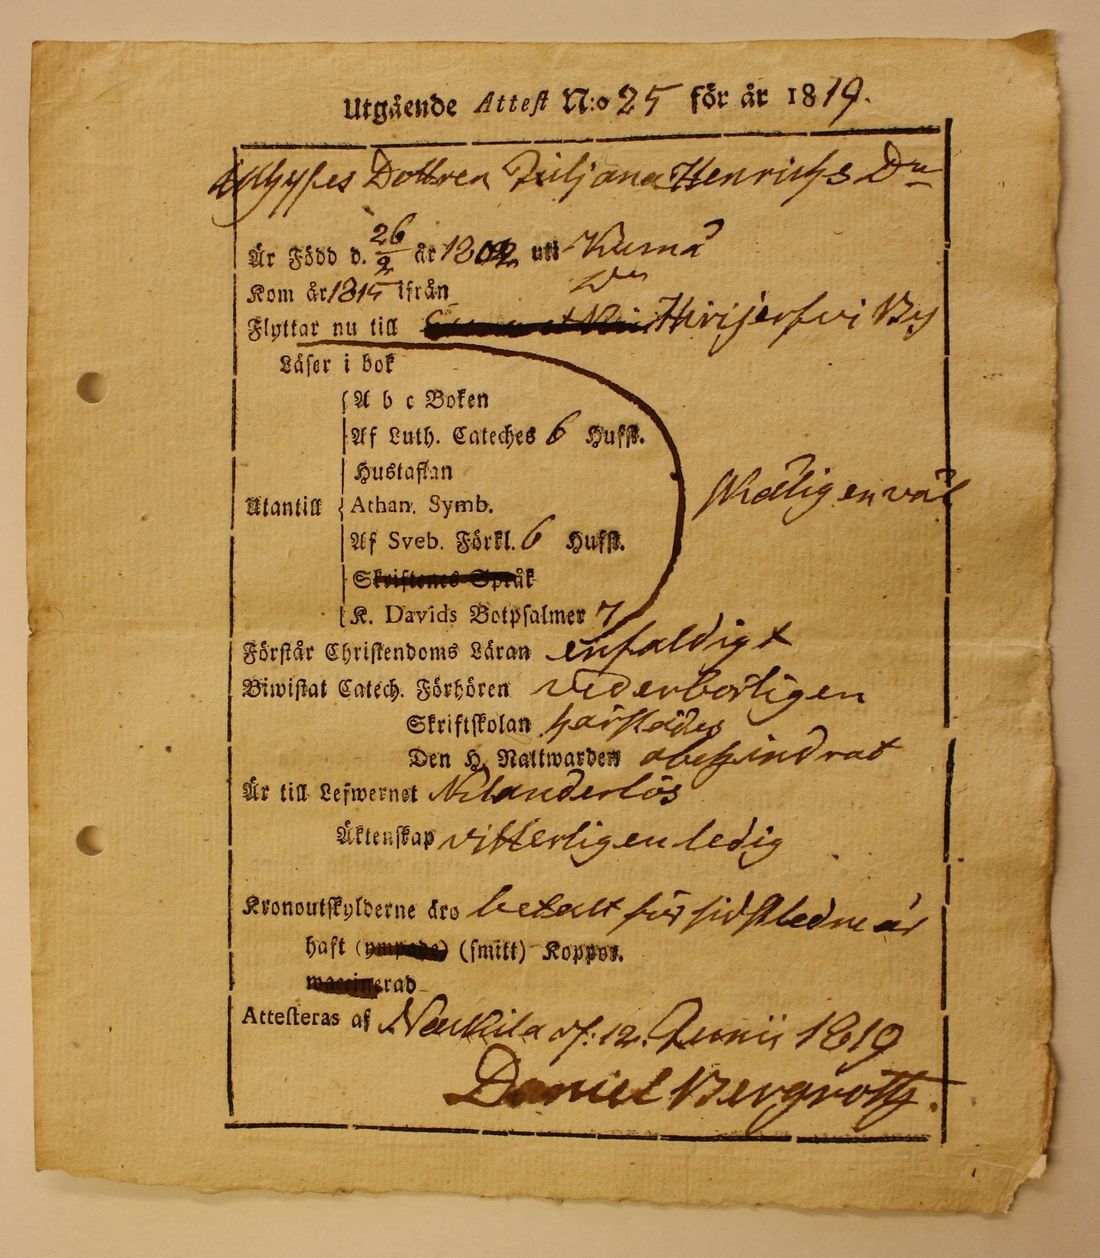 Utgående Attest N:o 25 för år 1819.
Dottren Juljana Henrichs Dr
Är Född d. 26/2 år 1802 uti
Kom år 1815 ifrån Do
Flyttar nu till Kirijerfvi By
Läser i bok
A b c Boken
Af Luth. Cateches 6 Hufst.
Hustaflan
Utantill Athan. Symb.
Af Sveb. Förkl. 6 Hufst.
Skriftenes Språk
K. Davids Botpsalmer 7
Mediligen väl
Förstår Christendoms Läran enfaldigt
Biwistat Catech. Förhören vederbörligen
Skriftskolan härstädes
Den H. Nattwarden obehindrat
Är till Lefwernet Oklanderlös
Äktenskap vitterligen ledig
Kronoutskylderne äro betalt för sidstledne år
haft (ympade) (smitt) Koppor.
waccinerad
Attesteras af Nerkila d. 12. Junii 1819
Daniel Bergroth.